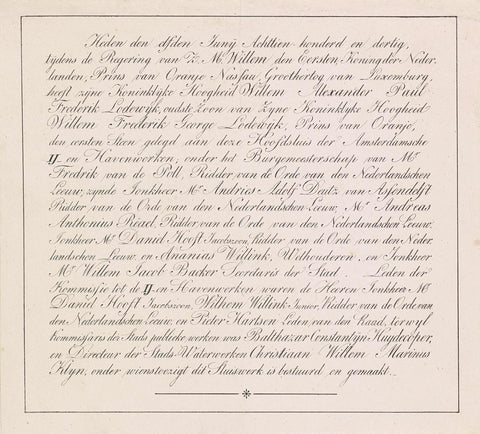 Heden den elfden Junij Achttien honderd en dertig,
tijdens de Regering van Z. M. Willem den Eersten, Koning der Neder-
landen, Prins van Oranje Nassau, Groothertog van Luxemburg,
heeft zijne Koninklijke Hoogheid Willem Alexander Paul
Frederik Lodewijk, oudste Zoon van Zijne Koninklijke Hoogheid
Willem Frederik George Lodewijk, Prins van Oranje,
den eersten Steen gelegd aan deze Hoofdsluis der Amsterdamsche
IJ en Havenwerken, onder het Burgemeesterschap van Mr.
Fredrik van de Poll, Ridder van de Orde van den Nederlandschen
Leeuw, zijnde Jonkheer Mr. Andries Adolf Deutz van Assendelft
Ridder van de Orde van den Nederlandschen Leeuw, Mr. Andreas
Anthonius Reael, Ridder van de Orde van den Nederlandschen Leeuw,
Jonkheer Mr. Daniel Hooft Jacobszoon, Ridder van de Orde van den Neder-
landschen Leeuw, en Ananias Willink, Wethouderen, en Jonkheer
Mr. Willem Jacob Backer Secretaris der Stad. Leden der
Kommissie tot de IJ en Havenwerken waren de Heeren Jonkheer Mr.
Daniel Hooft Jacobszoon, Wilhem Willink Junior, Ridder van de Orde van
den Nederlandschen Leeuw, en Pieter Hartsen Leden van den Raad, terwyl
Kommissaris der Stads publieke werken was Balthazar Constantyn Huydecoper,
en Directeur der Stads Waterwerken Christiaan Willem Marinus
Klyn, onder wiens toezigt dit Sluiswerk is bestuurd en gemaakt.